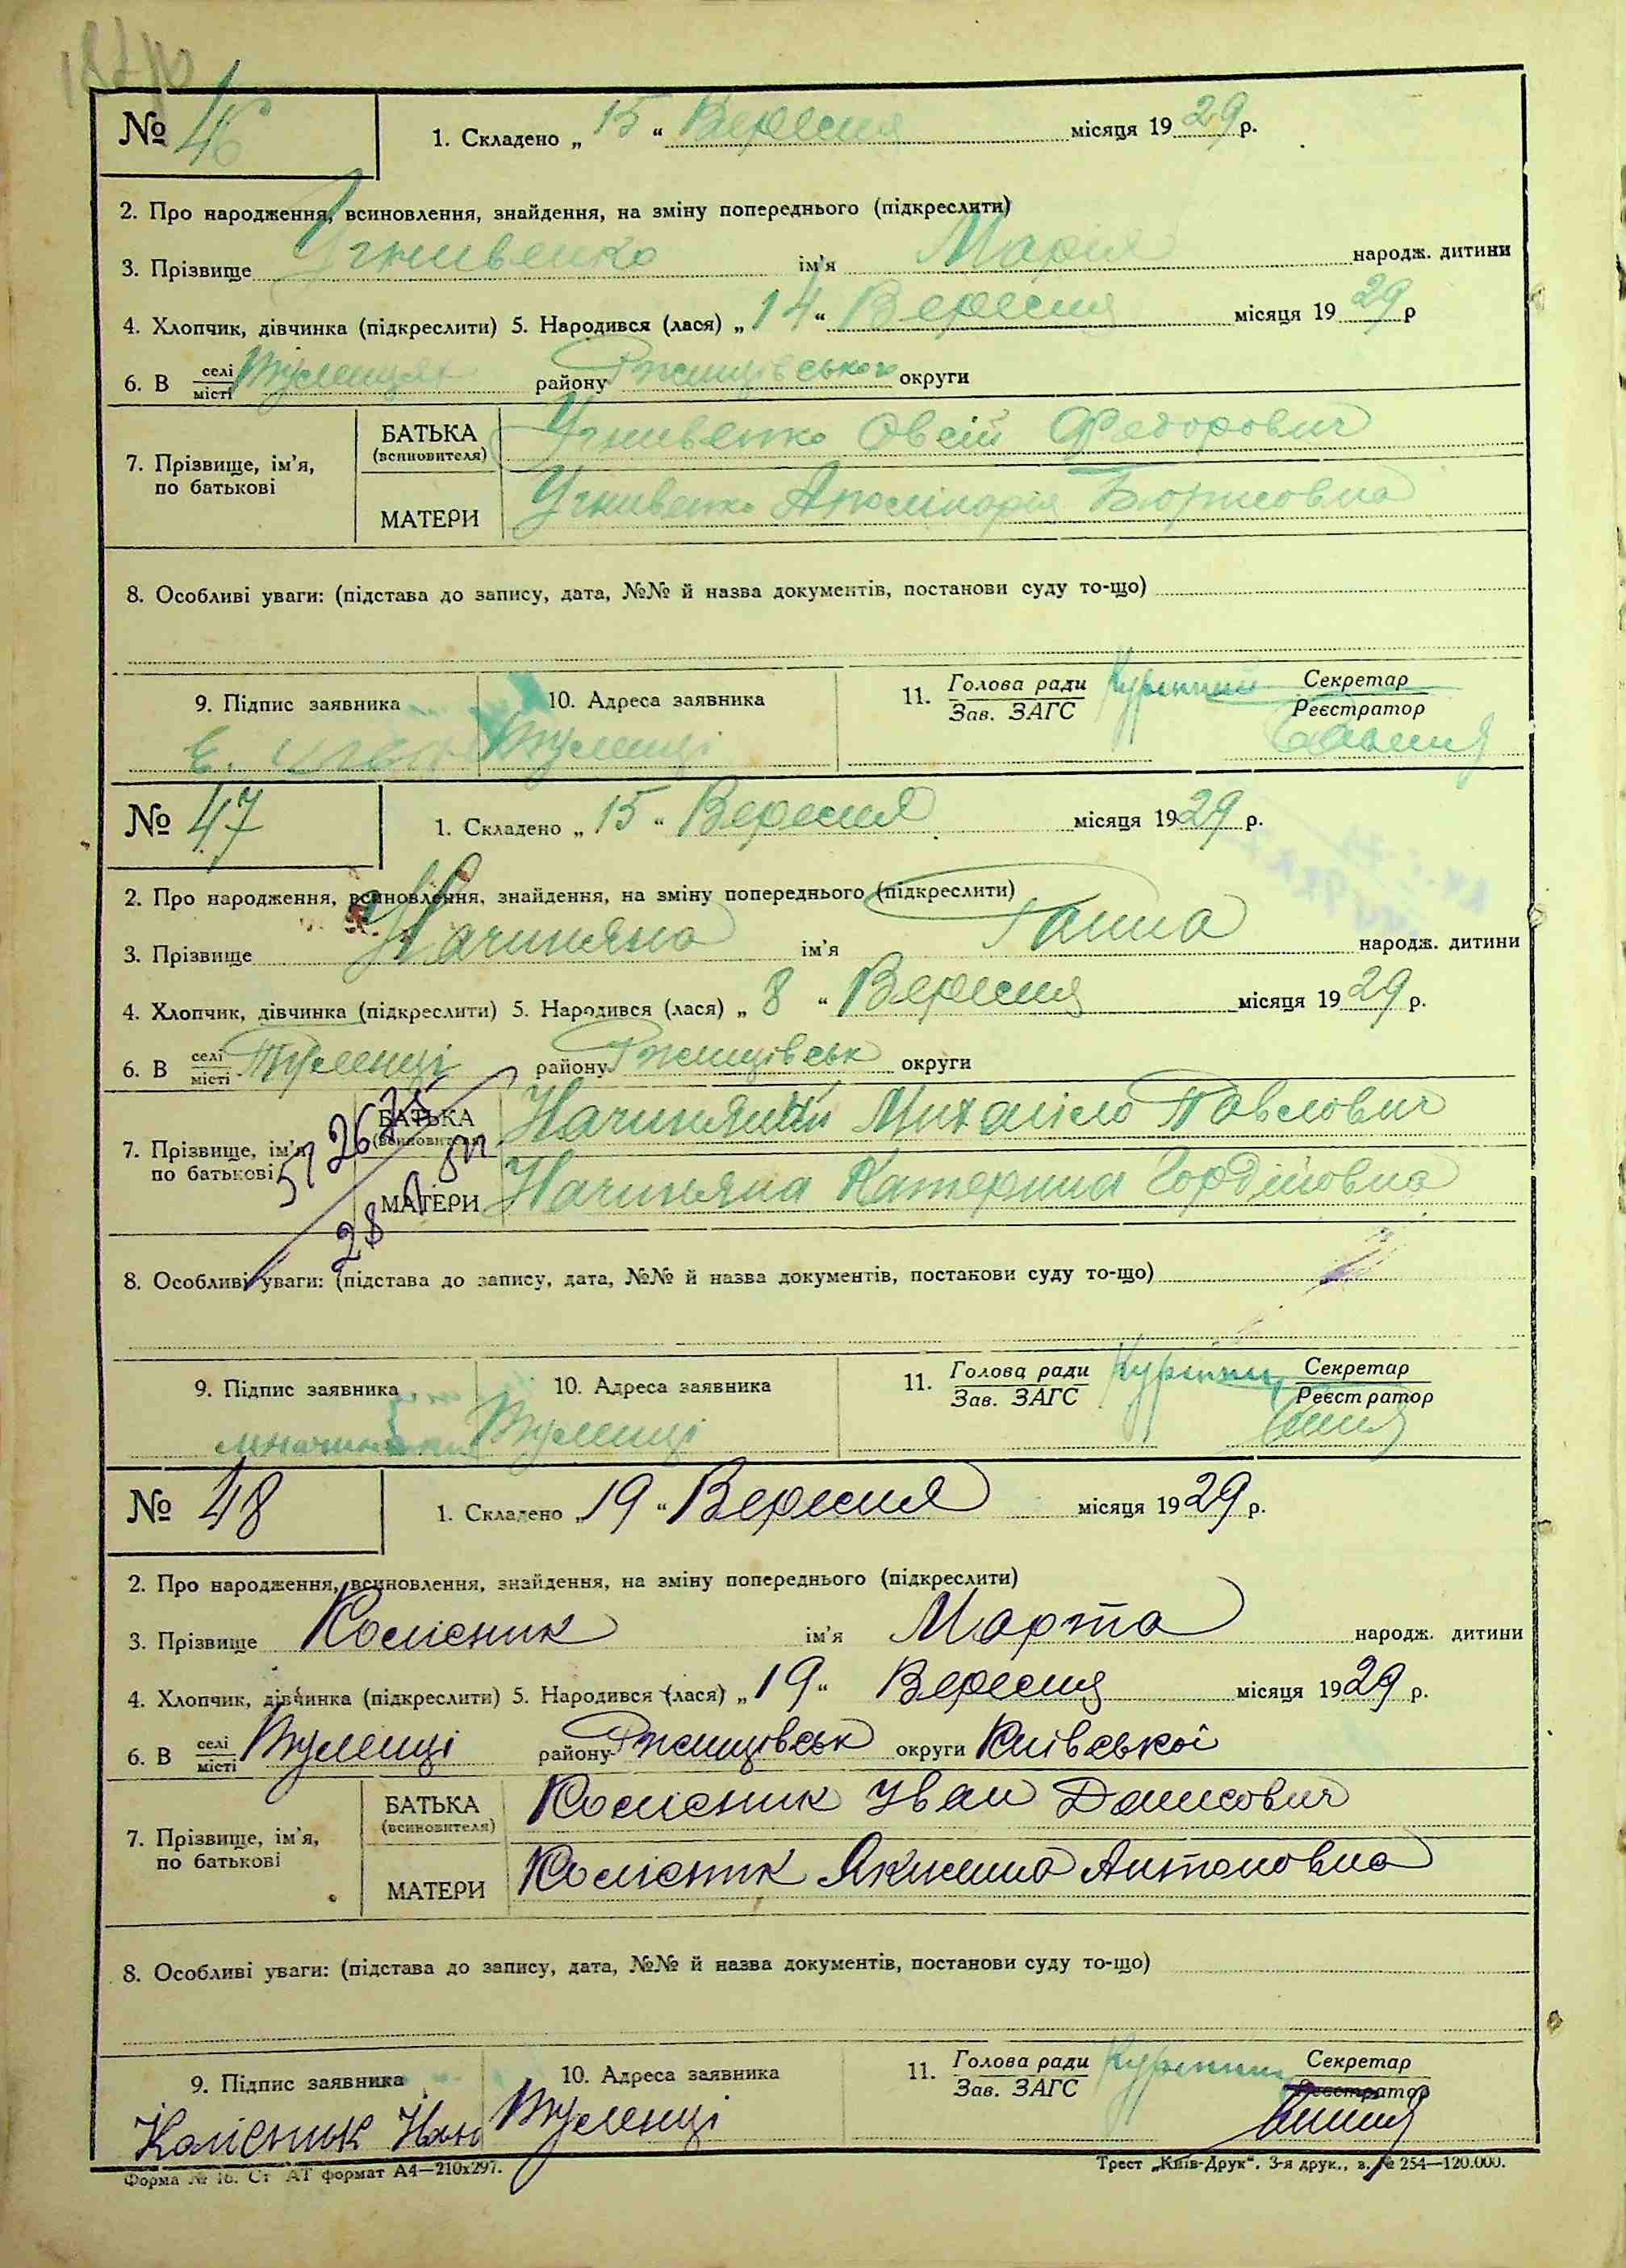 № 46
1. Складено „ 15 “ Вересня місяця 1929 р.
2. Про народження, всиновлення, знайдення, на зміну попереднього (підкреслити)
3. Прізвище Угнивенко ім'я Марія народж. дитини
4. Хлопчик, дівчинка (підкреслити) 5. Народився (лася) „ 14 “ Вересня місяця 1929 р
6. В селі місті Туленцях району Ржищівського округи
7. Прізвище, ім'я, по батькові
БАТЬКА (всиновителя) Угнивенко Овсій Федорович
МАТЕРИ Угнивенко Аполінарія Борисовна
8. Особливі уваги: (підстава до запису, дата, №№ й назва документів, постанови суду то-що)
9. Підпис заявника 10. Адреса заявника 11. Голова ради Зав. ЗАГС Секретар Реєстратор
Туленці
№ 47
1. Складено „ 15 “ Вересня місяця 1929 р.
2. Про народження, всиновлення, знайдення, на зміну попереднього (підкреслити)
3. Прізвище Начиняна ім'я Ганна народж. дитини
4. Хлопчик, дівчинка (підкреслити) 5. Народився (лася) „ 8 “ Вересня місяця 1929 р.
6. В селі місті Туленці району Ржищівськ округи
7. Прізвище, ім'я, по батькові
БАТЬКА (всиновителя) Начиняний Михайло Павлович
МАТЕРИ Начиняна Катерина Гордійовна
8. Особливі уваги: (підстава до запису, дата, №№ й назва документів, постанови суду то-що)
9. Підпис заявника 10. Адреса заявника 11. Голова ради Зав. ЗАГС Секретар Реєстратор
Туленці
№ 48
1. Складено „ 19 “ Вересня місяця 1929 р.
2. Про народження, всиновлення, знайдення, на зміну попереднього (підкреслити)
3. Прізвище Колісник ім'я Марта народж. дитини
4. Хлопчик, дівчинка (підкреслити) 5. Народився (лася) „ 19 “ Вересня місяця 1929 р.
6. В селі місті Туленці району Ржищівськ округи Київської
7. Прізвище, ім'я, по батькові
БАТЬКА (всиновителя) Колісник Іван Данилович
МАТЕРИ Колісник Якилина Антоновна
8. Особливі уваги: (підстава до запису, дата, №№ й назва документів, постанови суду то-що)
9. Підпис заявника 10. Адреса заявника 11. Голова ради Зав. ЗАГС Секретар Реєстратор
Колісник Іван Туленці
Форма № 16. Ст АТ формат А4—210х297. Трест „Київ-Друк“. 3-я друк., з. № 254—120.000.